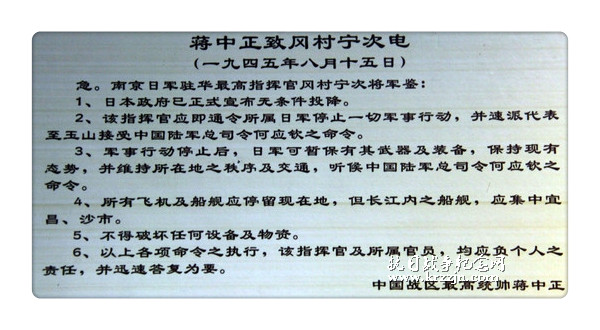 蒋中正致冈村宁次电
(一九四五年八月十五日)
急。南京日军驻华最高指挥官冈村宁次将军鉴:
1、日本政府已正式宣布无条件投降。
2、该指挥官应即通令所属日军停止一切军事行动,并速派代表
至玉山接受中国陆军总司令何应钦之命令。
3、军事行动停止后,日军可暂保有其武器及装备,保持现有
态势,并维持所在地之秩序及交通,听候中国陆军总司令何应钦之
命令。
4、所有飞机及船舰应停留现在地,但长江内之船舰,应集中宜
昌、沙市。
5、不得破坏任何设备及物资。
6、以上各项命令之执行,该指挥官及所属官员,均应负个人之
责任,并迅速答复为要。
中国战区最高统帅蒋中正
抗日战争纪念网
www.krzzjn.com